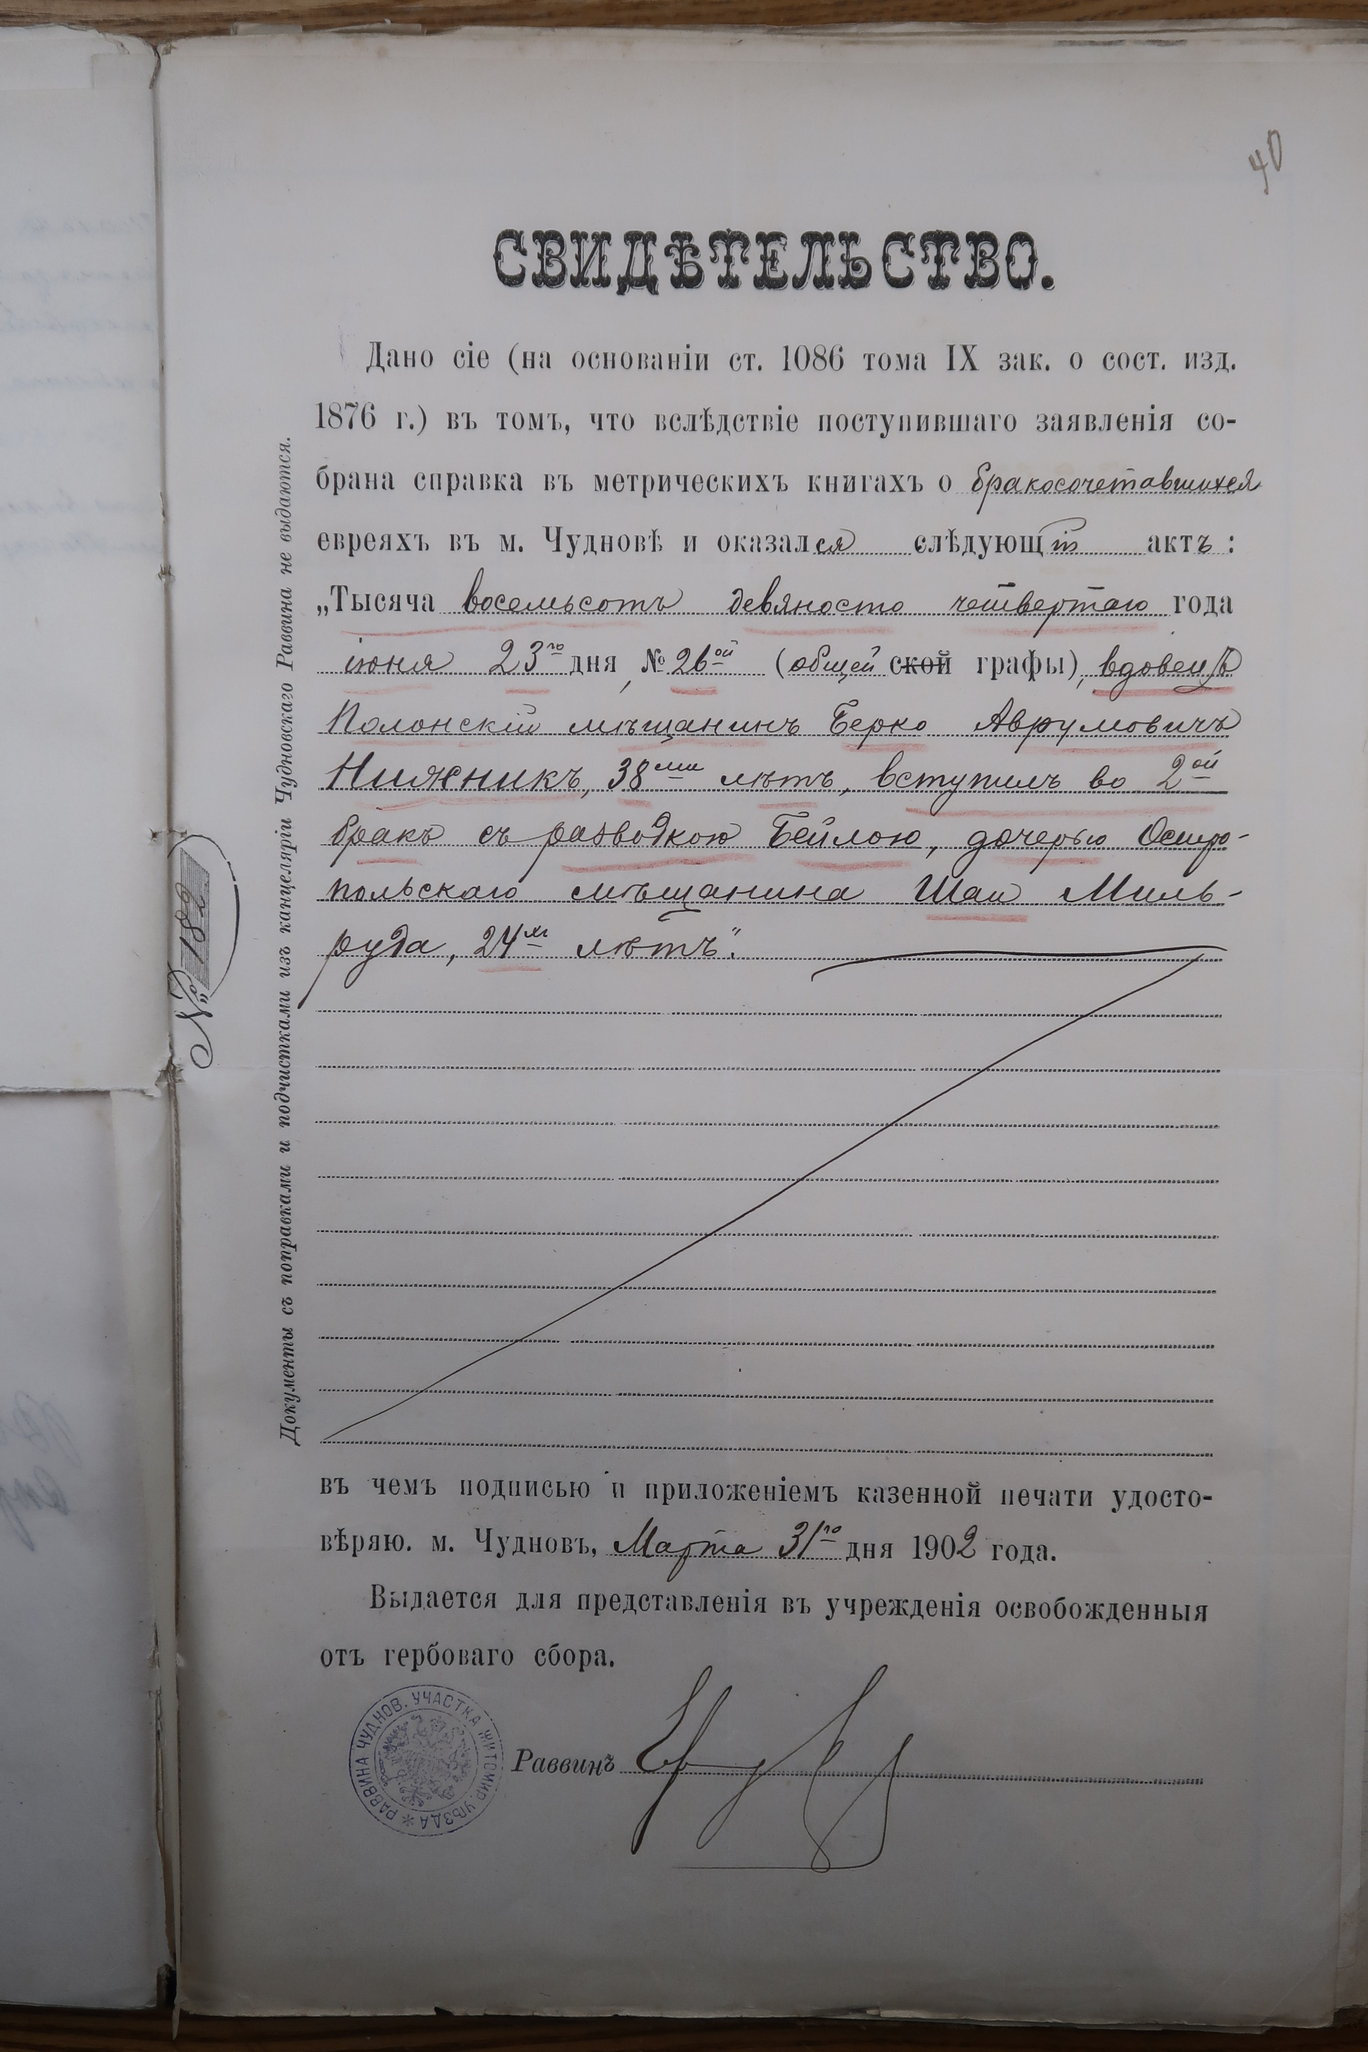 40
СВИДѢТЕЛЬСТВО.
Дано сіе (на основаніи ст. 1086 тома IX зак. о сост. изд.
1876 г.) въ томъ, что вслѣдствіе поступившаго заявленія со-
брана справка въ метрическихъ книгахъ о бракосочетавшихся
евреяхъ въ м. Чудновѣ и оказался слѣдующій актъ:
„Тысяча восемьсотъ девяносто четвертаго года
іюня 23го дня, № 26ой (общей ской графы), вдовецъ
Полонскій мѣщанинъ Берко Аврумовичъ
Нижникъ, 38ми лѣтъ, вступилъ во 2ой
бракъ съ разводкою Бейлою, дочерью Остро-
польскаго мѣщанина Шаи Миль-
руда, 24х лѣтъ".
въ чемъ подписью и приложеніемъ казенной печати удосто-
вѣряю. м. Чудновъ, Марта 31го дня 1902 года.
Выдается для представленія въ учрежденія освобожденныя
отъ гербоваго сбора.
Раввинъ
РАВВИНА ЧУДНОВ. УЧАСТКА ЖИТОМИР. УѢЗДА *
Документы съ поправками и подчистками изъ канцеляріи Чудновскаго Раввина не выдаются.
№ 182